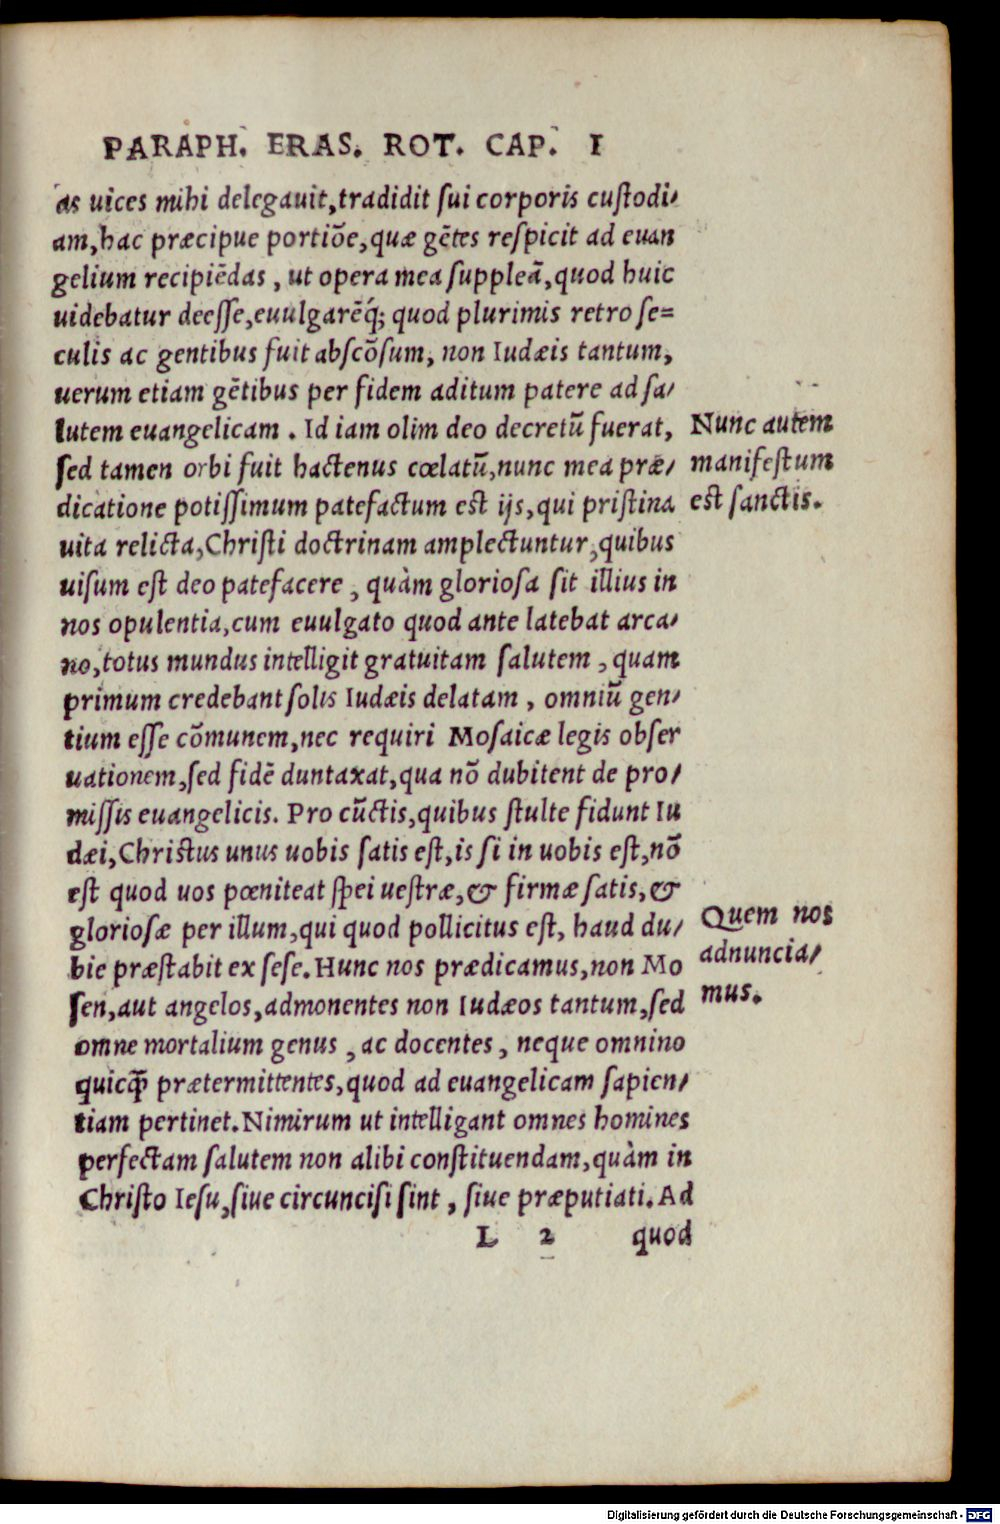 PARAPH. ERAS. ROT. CAP. I
as uices mihi delegauit,tradidit ſui corporis cuſtodi/
am,hac præcipue portiõe,quæ gẽtes reſpicit ad euan
gelium recipiẽdas, ut opera mea ſuppleã,quod huic
uidebatur deeſſe,euulgarẽq́; quod plurimis retro ſe=
culis ac gentibus fuit abſcõſum, non Iudæis tantum,
uerum etiam gẽtibus per fidem aditum patere ad ſa/
lutem euangelicam. Id iam olim deo decretũ fuerat,
ſed tamen orbi fuit hactenus cœlatũ,nunc mea præ/
dicatione potiſſimum patefactum eſt ijs,qui priſtina
uita relicta,Chriſti doctrinam amplectuntur,quibus
uiſum eſt deo patefacere, quàm glorioſa ſit illius in
nos opulentia,cum euulgato quod ante latebat arca/
no,totus mundus intelligit gratuitam ſalutem, quam
primum credebant ſolis Iudæis delatam, omniũ gen/
tium eſſe cõmunem,nec requiri Moſaicæ legis obſer
uationem,ſed fidẽ duntaxat,qua nõ dubitent de pro/
miſſis euangelicis. Pro cũctis,quibus ſtulte fidunt Iu
dæi,Chriſtus unus uobis ſatis eſt,is ſi in uobis eſt,nõ
eſt quod uos pœniteat ſpei ueſtræ,& firmæ ſatis,&
glorioſæ per illum,qui quod pollicitus eſt, haud du/
bie præſtabit ex ſeſe.Hunc nos prædicamus,non Mo
ſen,aut angelos,admonentes non Iudæos tantum,ſed
omne mortalium genus, ac docentes, neque omnino
quicq̃ prætermittentes,quod ad euangelicam ſapien/
tiam pertinet.Nimirum ut intelligant omnes homines
perfectam ſalutem non alibi conſtituendam,quàm in
Chriſto Ieſu,ſiue circunciſi ſint, ſiue præputiati.Ad
L 2 quod
Nunc autem
manifeſtum
eſt ſanctis.
Quem nos
adnuncia/
mus.
Digitalisierung gefördert durch die Deutsche Forschungsgemeinschaft - DFG